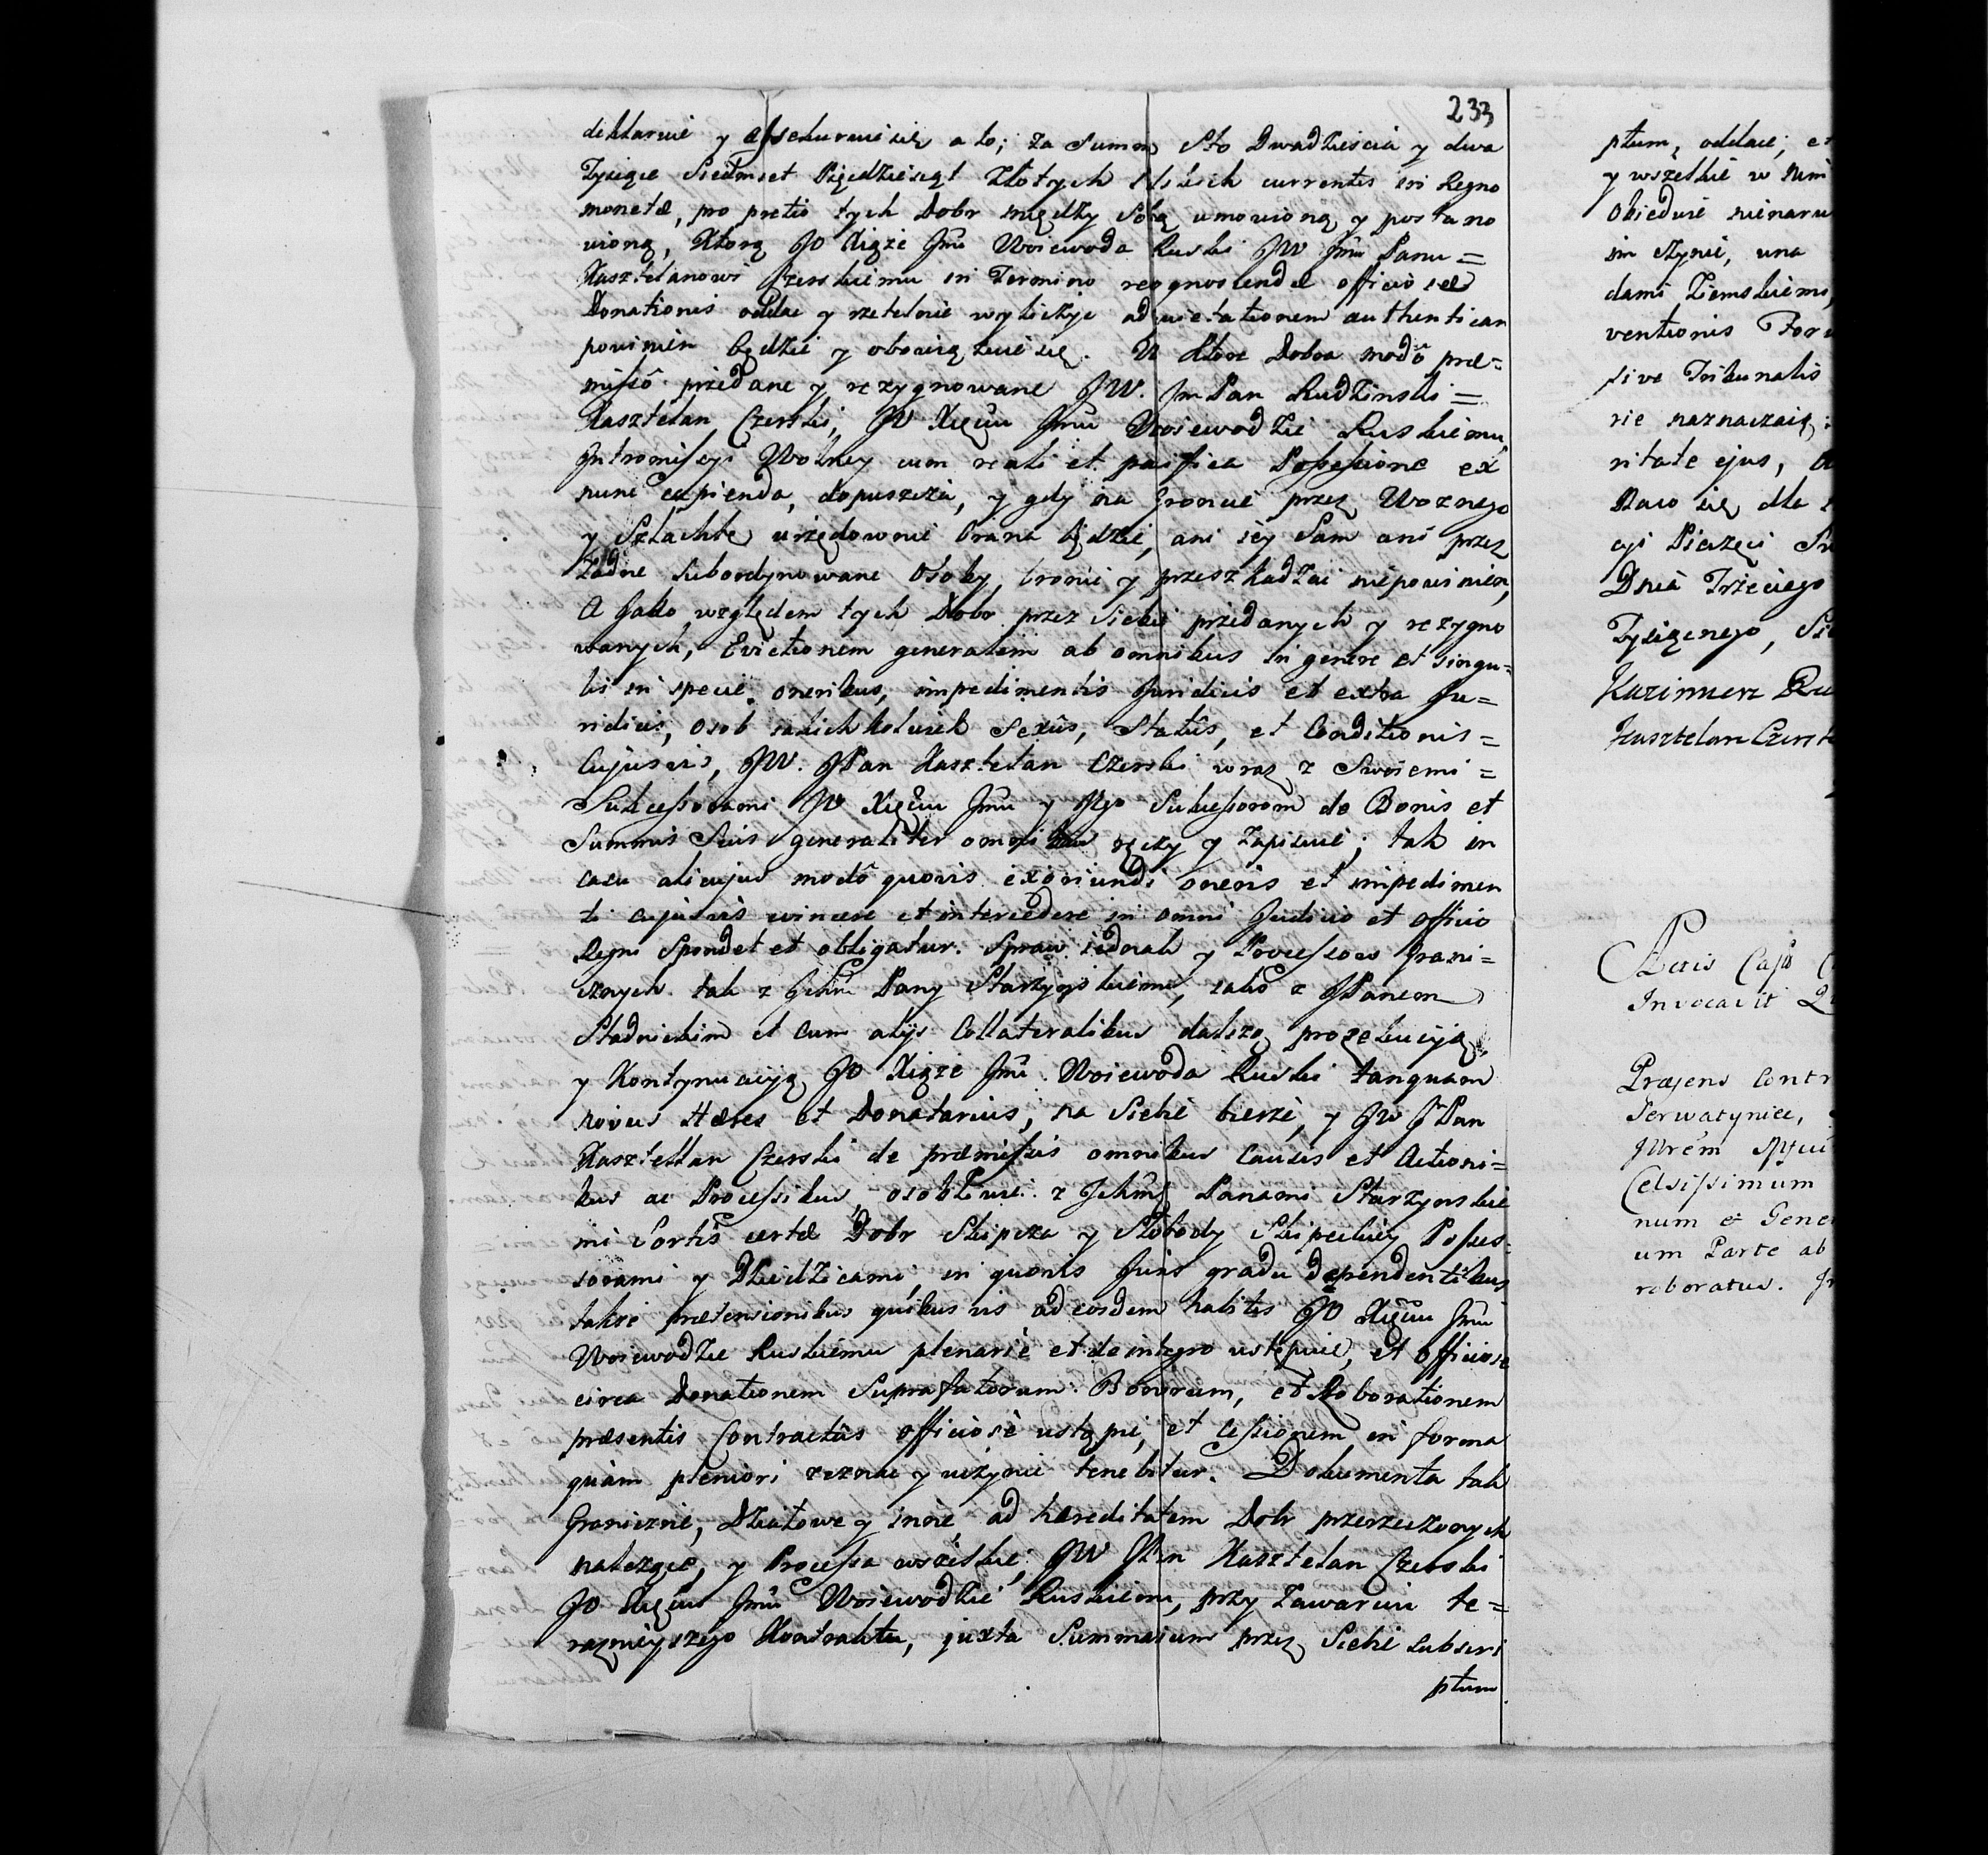 233
deklaruie y assekuruie się a to; za Summę Sto Dwadzieścia y dwa
Tysiące Siedmset Pięcdziesiąt Złotych Polskich currentis in Regno
monetæ, pro pretio tych Dobr między Sobą umowioną y postano
wioną, Ktorą JO Xiąże Jmć Woiewoda Ruski JW Jmć Panu =
Kasztelanowi Czerskiemu in Termino recognoscendæ officiosæ
Donationis oddac y rzetelnie wyliczyc ad quietationem authenticam
powinien będzie y obowiązuie się. W ktore Dobra modô præ=
missô przedane y rezygnowane JW. Jm Pan Rudzinski =
Kasztelan Czerski, JO Xięciu Jmci Woiewodzie Ruskiemu
Intromissyi Wolney cum reali et pacifica Possessione ex
nunc capienda, dopuszcza, y gdy na gruncie przez Woznego
y Szlachtę urzędownie brana będzie, ani iey Sam ani przez
żadne Subordynowane Osoby, bronic y przeszkadzac niepowinien,
A Jako względem tych Dobr przez Siebie przedanych y rezygno
wanych, Evictionem generalem ab omnibus in genere et singu=
lis in specie oneribus, impedimentis Juridicis et extra Ju=
ridicis, osob iakichkolwiek Sexûs, Statûs, et Conditionis =
Cujusvis, JW. JPan Kasztelan Czerski wraz z Swoiemi =
Sukcessorami JO Xięciu Jmci y Jego Sukcessorom de Bonis et
Summis Suis generaliter omnibus ręczy y Zapisuie; tak in
casu alicujus modô quovis exoriundi oneris et impedimen
ti cujusvis evincere et intercedere in omni Judicio et officio
Regni Spondet et obligatur. Spraw iednak y Processow Grani=
cznych tak z Ichmć Pany Starzynskiemi, iako z JPanem
Stadnickim et cum alijs Collateralibus dalszą prozekucyią
y Kontynuacyią JO Xiąże Jmć. Woiewoda Ruski tanquam
novus Hæres et Donatarius, na Siebie bierze, y JW JPan
Kasztellan Czerski de præmissis omnibus Causis et Actioni=
bus ac Processibus, osobliwie z Ichmć Panami Starzynskie
mi Sortis certæ Dobr Skipcza y Słobody Skipeckiey Posses=
sorami y Dziedzicami, in quovis Juris gradu dependentibus
także prætensionibus quibusvis ad eosdem habitis JO Xięciu Jmci
Woiewodzie Ruskiemu plenarie et de integro ustępuie, et officiose
circa Donationem Suprafatorum Bonorum, et Roborationem
præsentis Contractûs officiosè ustąpic, et Cessionem in forma
quàm pleniori zeznac y uczynic tenebitur. Dokumenta tak
Graniczne, Działowe y inne, ad hæreditatem Dobr przerzeczonych
należące, y Processa wszelkie JW JPan Kasztelan Czerski
JO Xięciu Jmci Woiewodzie Ruskiemu, przy Zawarciu te=
raznieyszego Kontraktu, juxta Summarium przez Siebie subscri
ptum
ptum, oddac, et
y wszelkie w nim
Obiecuie nienaru
im czynic, una
dami Ziemskiemi,
ventionis For
sive Tribunalis
rie naznaczaią;
ritate ejus,
Działo się dla
cyi Pieczęci
Dnia Trzeciego
Tysiącnego, Si
Kazimierz Ru
Kasztelan Czersk
Actis
Invocavit
Præsens Contr
Serwatynice,
Celsissimum
num & Gene
um Parte ab
roboratus.